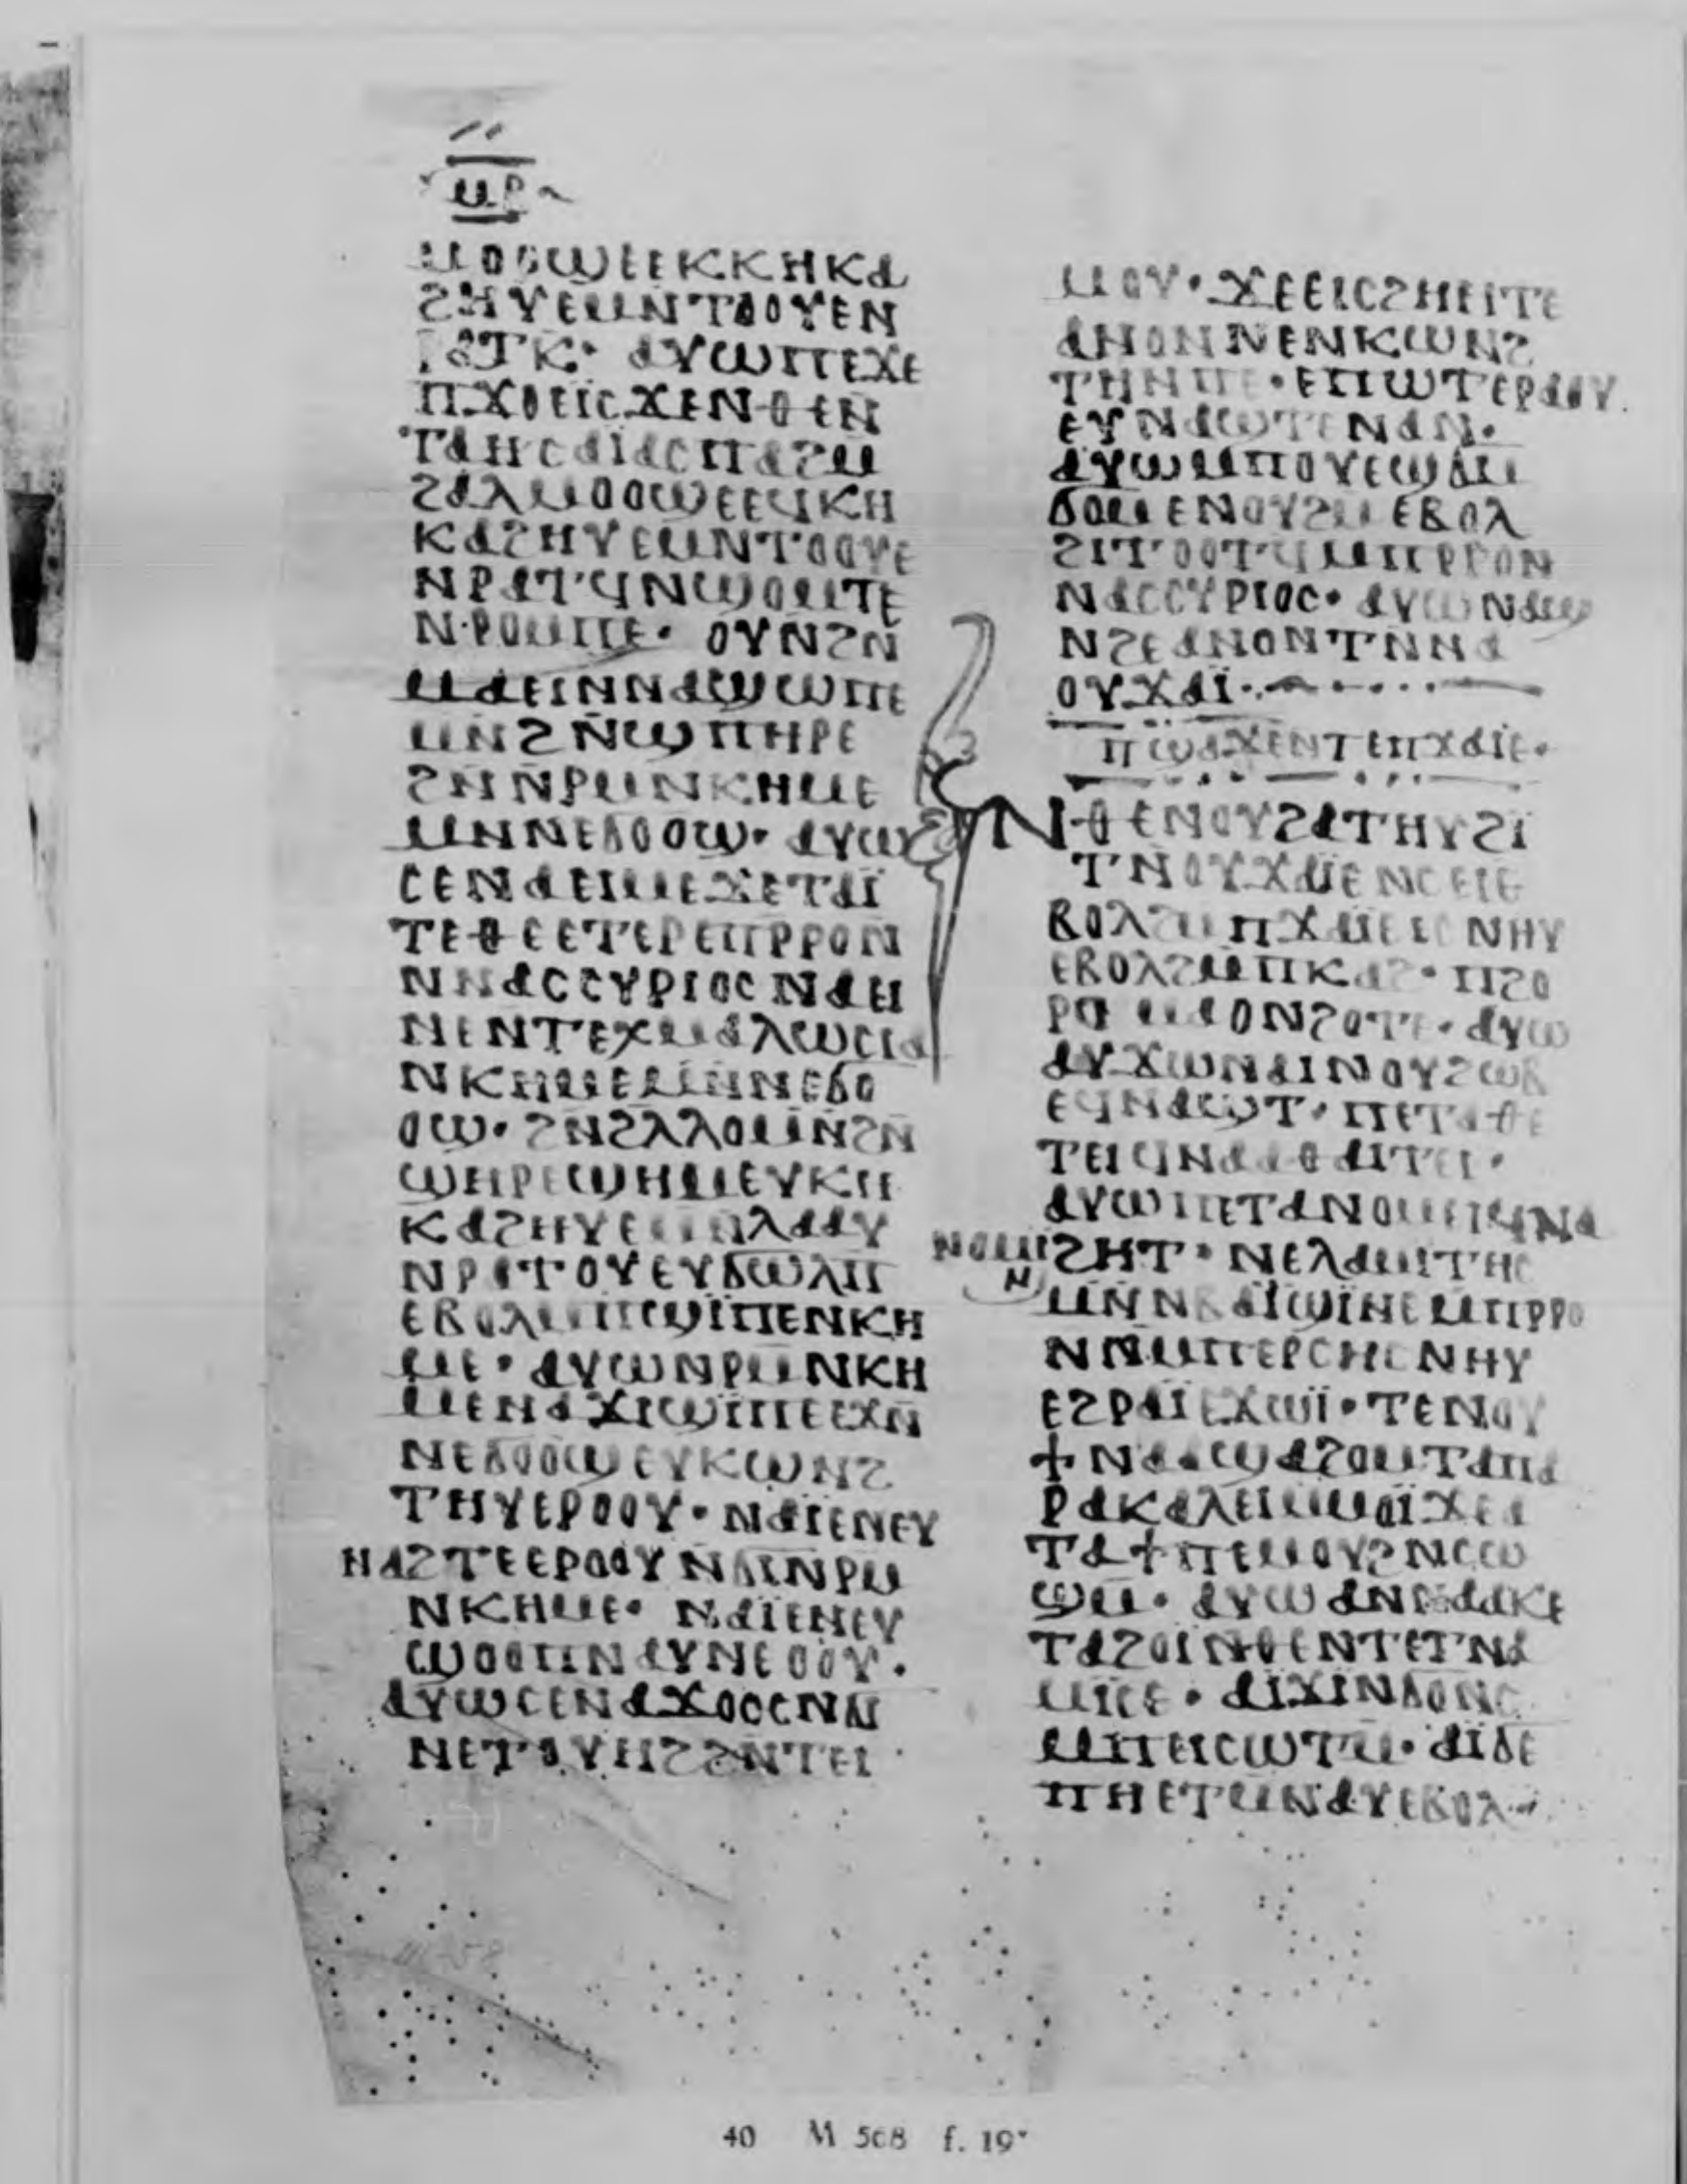 ⲙⲟⲟϣⲉⲕⲕⲏⲕⲁ
ϩⲏⲩⲉⲙⲛⲧⲟⲟⲩⲉⲛ
ⲣⲁⲧⲕ· ⲁⲩⲱⲡⲉϫⲉ
ⲡϫⲟⲉⲓⲥϫⲉⲛⲑⲉⲛ
ⲧⲁⲏⲥⲁⲓⲁⲥⲡⲁϩⲙ
ϩⲁⲗⲙⲟⲟϣⲉⲉϥⲕⲏ
ⲕⲁϩⲏⲩⲉⲙⲛⲧⲟⲟⲩⲉ
ⲛⲣⲁⲧϥⲛϣⲟⲙⲧⲉ
ⲛⲣⲟⲙⲡⲉ· ⲟⲩⲛϩⲛ
ⲙⲁⲉⲓⲛⲛⲁϣⲱⲡⲉ
ⲙⲛϩⲛ̄ϣⲡⲏⲣⲉ
ϩⲛⲛ̄ⲣⲙⲛⲕⲏⲙⲉ
ⲙⲛⲛⲉϭⲟⲟϣ· ⲁⲩⲱ
ⲥⲉⲛⲁⲉⲓⲙⲉϫⲉⲧⲁⲓ̈
ⲧⲉⲑⲉⲉⲧⲉⲣⲉⲡⲣⲣⲟⲛ
ⲛⲛⲁⲥⲥⲩⲣⲓⲟⲥⲛⲁⲛ
ⲛⲉⲛⲧⲉⲭⲙⲁⲗⲱⲥⲓⲁ
ⲛⲕⲏⲙⲉⲙⲛⲛⲉϭⲟ
ⲟϣ· ϩⲛϩⲗⲗⲟⲙⲛϩⲛ
ϣⲏⲣⲉϣⲏⲙⲉⲩⲕⲏ
ⲕⲁϩⲏⲩⲉⲙⲛⲗⲁⲁⲩ
ⲛⲣⲁⲧⲟⲩⲉⲩϭⲱⲗⲡ
ⲉⲃⲟⲗⲙⲡϣⲓⲡⲉⲛⲕⲏ
ⲙⲉ· ⲁⲩⲱⲛⲣⲙⲛⲕⲏ
ⲙⲉⲛⲁϫⲓϣⲓⲡⲉⲉϫⲛ
ⲛⲉϭⲟⲟϣⲉⲩⲕⲱⲛϩ
ⲧⲏⲩⲉⲣⲟⲟⲩ· ⲛⲁⲓⲉⲛⲉⲩ
ⲛⲁϩⲧⲉⲉⲣⲟⲟⲩⲛϭⲓⲛⲣⲙ
ⲛⲕⲏⲙⲉ· ⲛⲁⲓⲉⲛⲉⲩ
ϣⲟⲟⲡⲛⲁⲩⲛⲉⲟⲟⲩ.
ⲁⲩⲱⲥⲉⲛⲁϫⲟⲟⲥⲛϭⲓ
ⲛⲉⲧⲟⲩⲏϩϩⲛⲧⲉⲓ
ⲙⲟⲩ· ϫⲉⲉⲓⲥϩⲏⲉⲓⲧⲉ
ⲁⲛⲟⲛⲛⲉⲛⲕⲱⲛϩ
ⲧⲏⲛⲡⲉ· ⲉⲡⲱⲧⲉⲣⲁⲟⲩ
ⲉⲩⲛⲁϣⲧⲉⲛⲁⲛ·
ⲁⲩⲱⲙⲡⲟⲩⲉϣϭⲙ
ϭⲟⲙⲉⲛⲟⲩϩⲙⲉⲃⲟⲗ
ϩⲓⲧⲟⲟⲧϥⲙⲡⲣⲣⲟⲛ
ⲛⲁⲥⲥⲩⲣⲓⲟⲥ· ⲁⲩⲱⲛⲁϣ
ⲛϩⲉⲁⲛⲟⲛⲧⲛⲛⲁ
ⲟⲩϫⲁⲓ̈·
ⲡϣⲁϫⲉⲛⲧⲉⲡϫⲁⲓⲉ·
ⲛⲑⲉⲛⲟⲩϩⲁⲧⲏⲩϩⲓ
ⲧⲛⲟⲩϫⲁⲓⲉⲛⲥⲉⲓⲉ
ⲃⲟⲗϩⲙⲡϫⲁⲓⲉⲉⲥⲛⲏⲩ
ⲉⲃⲟⲗϩⲙⲡⲕⲁϩ· ⲡϩⲟ
ⲣⲟⲙⲁⲟⲛϩⲟⲧⲉ· ⲁⲩⲱ
ⲁⲩϫⲱⲛⲁⲓⲛⲟⲩϩⲱⲃ
ⲉϥⲛⲁϣⲧ· ⲡⲉⲧⲁⲑⲉ
ⲧⲉⲓϥⲛⲁⲁⲑⲁⲓⲧⲉⲓ·
ⲁⲩⲱⲡⲉⲧⲁⲛⲟⲙⲉⲓϥⲛⲁ
ⲛⲟⲙⲓ
ϩⲏⲧ· ⲛⲉⲗⲁⲙⲓⲧⲏⲥ
ⲛ
ⲙⲛⲛϥⲁⲓϣⲓⲛⲉⲙⲡⲣⲣⲟ
ⲛⲙⲡⲉⲣⲥⲏⲥⲛⲏⲩ
ⲉϩⲣⲁⲓ̈ⲉϫⲱⲓ̈· ⲧⲉⲛⲟⲩ
ϯⲛⲁⲁϣⲁϩⲟⲙⲧⲁⲡⲁ
ⲣⲁⲕⲁⲗⲉⲓⲙⲙⲟⲓ̈ϫⲉⲁ
ⲧⲁϯⲡⲉⲙⲟⲩϩⲛⲥⲱ
ϣⲙ· ⲁⲩⲱⲁⲛⲛⲁⲁⲕⲉ
ⲧⲁϩⲟⲓⲛⲑⲉⲛⲧⲉⲧⲛⲁ
ⲙⲓⲥⲉ· ⲁⲓϫⲓⲛϭⲟⲛⲥ
ⲙⲡⲉⲓⲥⲱⲧⲙ· ⲁⲓϭⲉ
ⲡⲏⲉⲧⲙⲛⲁⲩⲉⲃⲟⲗ
40 M 568 f. 19ᵛ